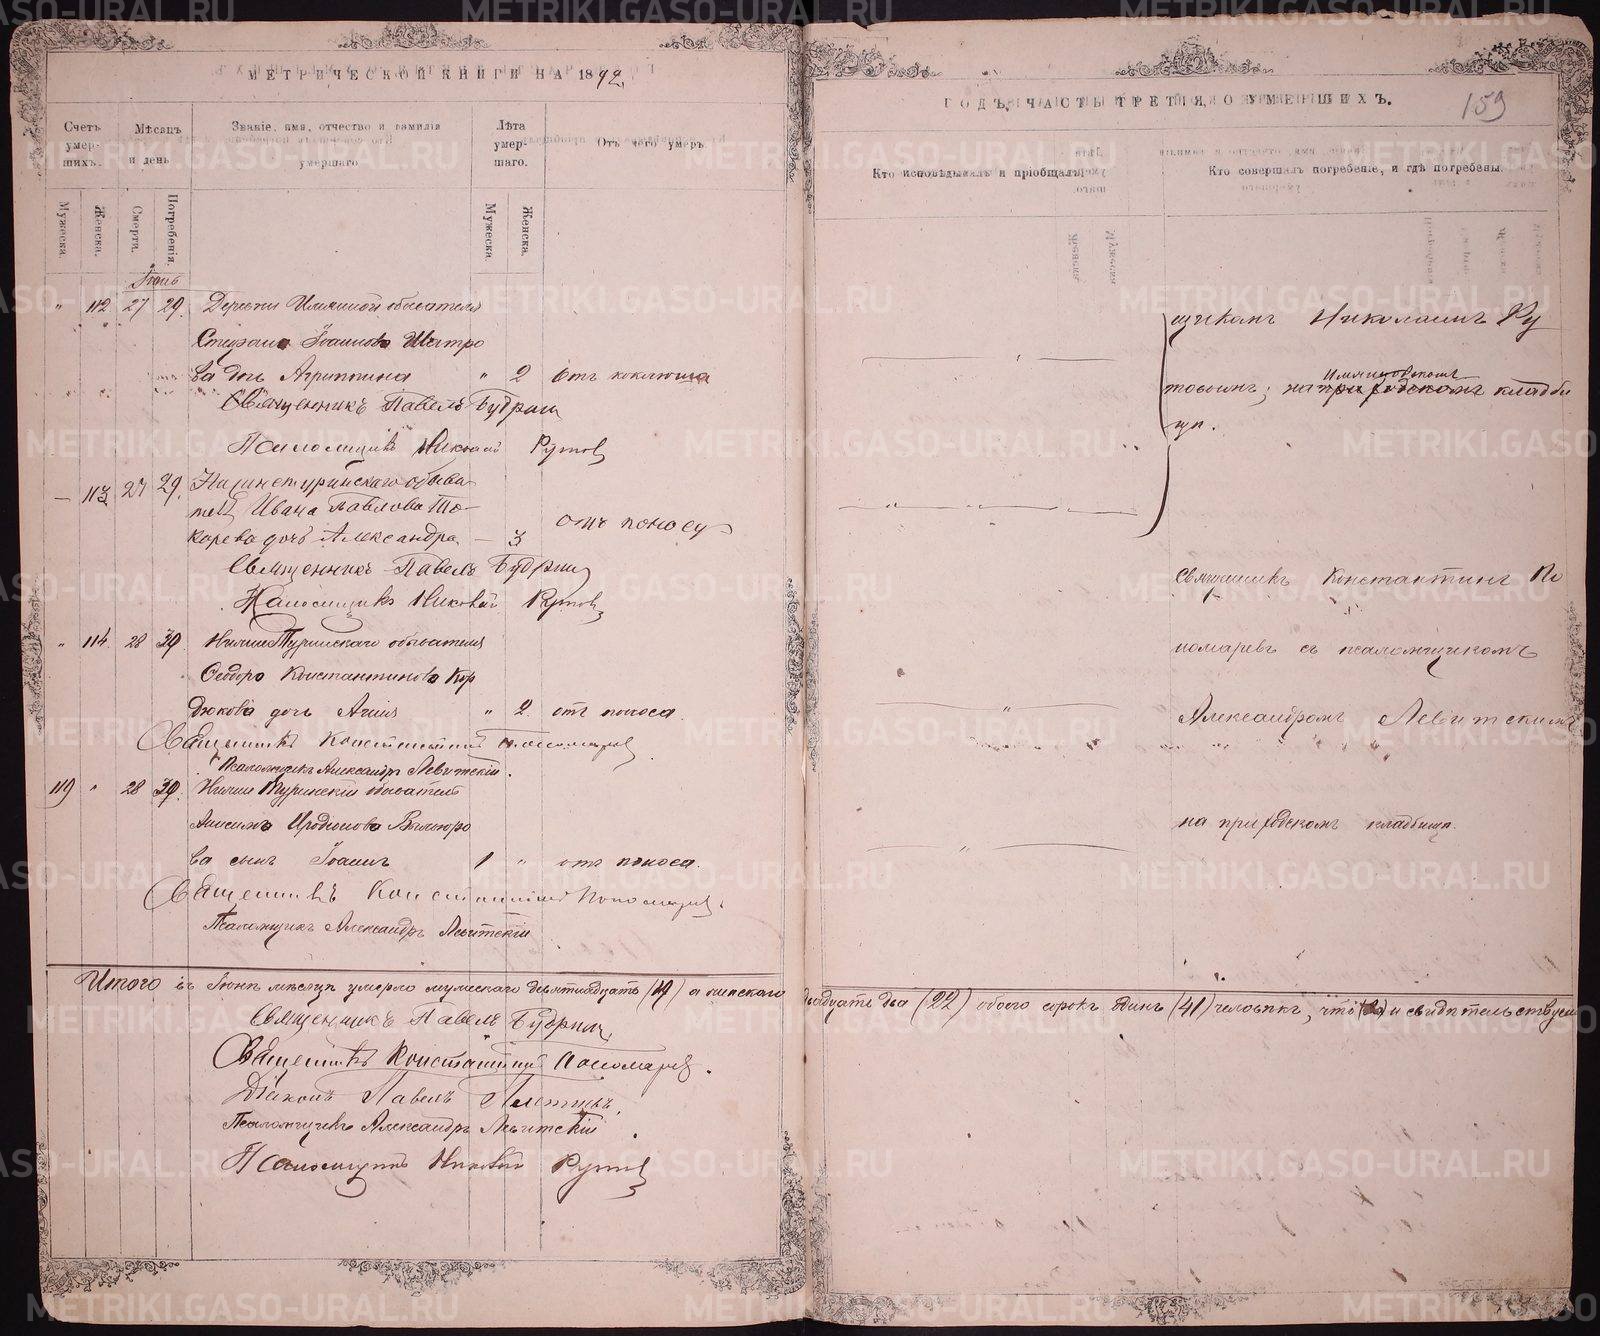 МЕТРИЧЕСКОЙ КНИГИ НА 1892.
Счетъ умер-шихъ.
Мѣсяцъ и день
Званіе, имя, отчество и фамилія умершаго.
Лѣта умер-шаго.
Отъ чего умеръ.
Мужеска.
Женска.
Смерти.
Погребенія.
Мужеска.
Женска.
Іюнь
" 112 27 29. Деревни обывателя
Стефана Іоаннова Шатро
ва дочь Агриппина " 2 отъ коклюша
Священникъ Павелъ Будринъ
Псаломщикъ Николай Рутовъ
— 113 27 29. Нижнетуринскаго обыва
теля Ивана Павлова То-
карева дочь Александра — 3 отъ поносу
Священникъ Павелъ Будринъ
Псаломщикъ Николай Рутовъ
" 114. 28 30. Нижне Туринскаго обывателя
Ѳеодора Константинова Кор
дюкова дочь " 2. отъ поноса.
Священникъ Константинъ Пономаревъ
Псаломщикъ Александръ Левитскій.
119 " 28 30. Нижне Туринскій обыватель
Анисима Иродіонова
ва сынъ Іоаннъ 1 " отъ поноса.
Священникъ Константинъ Пономаревъ.
Псаломщикъ Александръ Левитскій
Итого въ Іюнѣ мѣсяцѣ умерло мужескаго девятнадцать (19) а женскаго
Священникъ Павелъ Будринъ
Священникъ Константинъ Пономаревъ.
Діаконъ Павелъ
Псаломщикъ Александръ Левитскій.
Псаломщикъ Николай Рутовъ
ГОДЪ, ЧАСТЬ ТРЕТІЯ, О УМЕРШИХЪ.
159
Кто исповѣдывалъ и пріобщалъ.
Кто совершалъ погребеніе, и гдѣ погребены.
щикомъ Николаемъ Ру
товымъ; на приходскомъ кладби
щѣ.
Священникъ Константинъ По
номаревъ съ псаломщикомъ
Александромъ Левитскимъ
на приходскомъ кладбищѣ.
двадцать два (22) обоего сорокъ одинъ (41) человѣкъ, что и свидѣтельствуемъ
METRIKI.GASO-URAL.RU